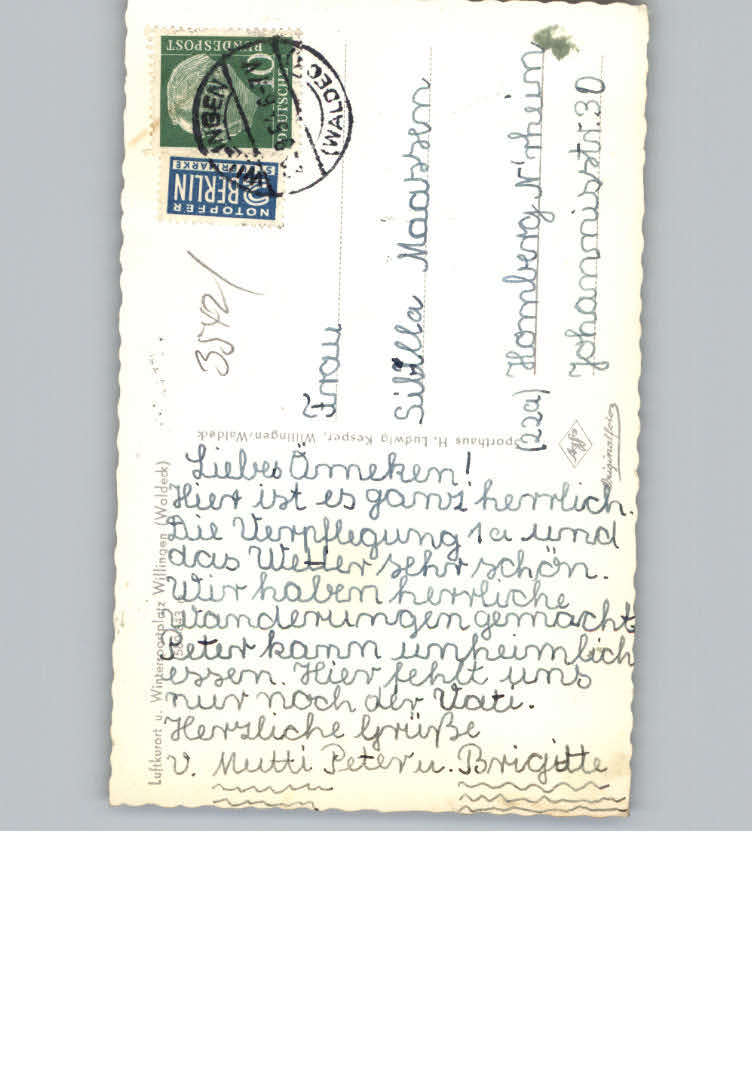 Liebes Ömeken!
Hier ist es ganz herrlich.
Die Verpflegung 1a und
das Wetter sehr schön.
Wir haben herrliche
Wanderungen gemacht.
Peter kann unheimlich
essen. Hier fehlt uns
nur noch der Vati.
Herzliche Grüße
v. Mutti Peter u. Brigitte
Frau
Sibilla Maassen
(22a) Homberg N'rhein
Johannisstr. 30
3542/
DEUTSCHE
BUNDESPOST
10
NOTOPFER
2 BERLIN
STEUERMARKE
WILLINGEN
(WALDECK)
Luftkurort u. Wintersportplatz Willingen (Waldeck)
Sporthaus H. Ludwig Kesper, Willingen/Waldeck
Agfa
Originalfoto